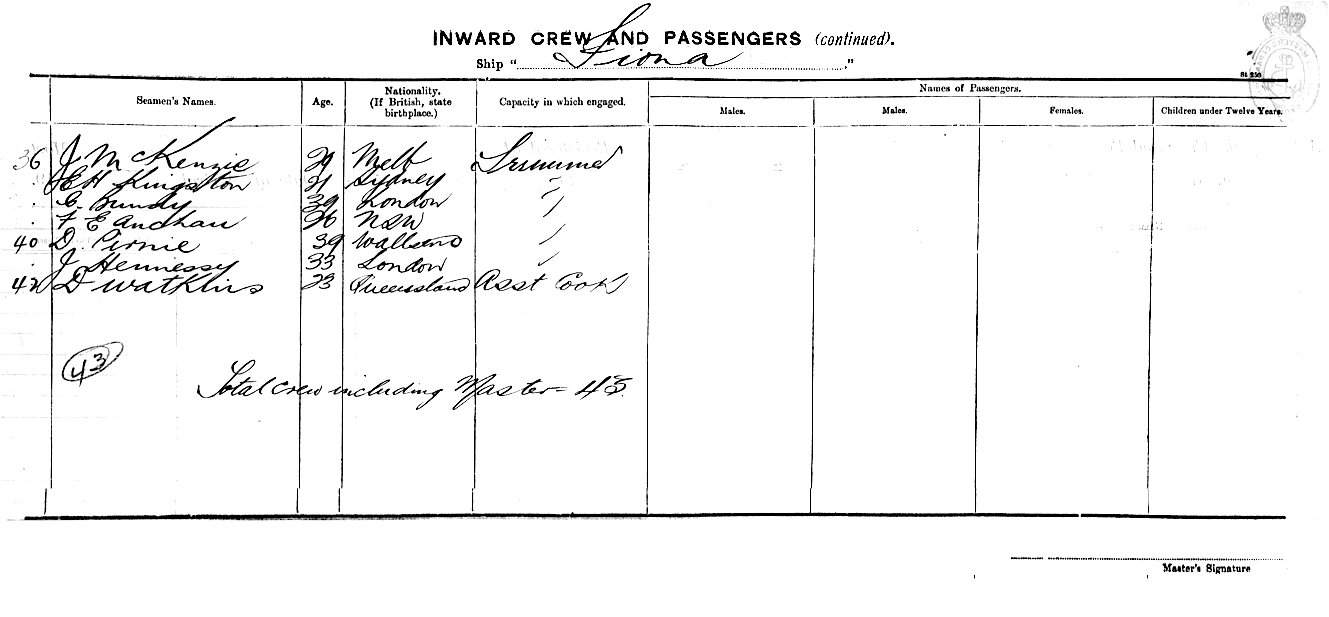 INWARD CREW AND PASSENGERS (continued).
Ship "Fiona"
81 256
Seamen's Names. Age. Nationality. (If British, state birthplace.) Capacity in which engaged. Names of Passengers.
Males. Males. Females. Children under Twelve Years.
36 J McKenzie 29 Melb
. E H Kingston 21 Sydney "
. C. Bundy 39 London "
. F E 26 NSW "
40 D. Pirnie 39 Wallsend "
. J Hennessy 33 London "
42 D Watkins 23 Queensland Asst Cook
43
Total crew including Master = 43
Master's Signature